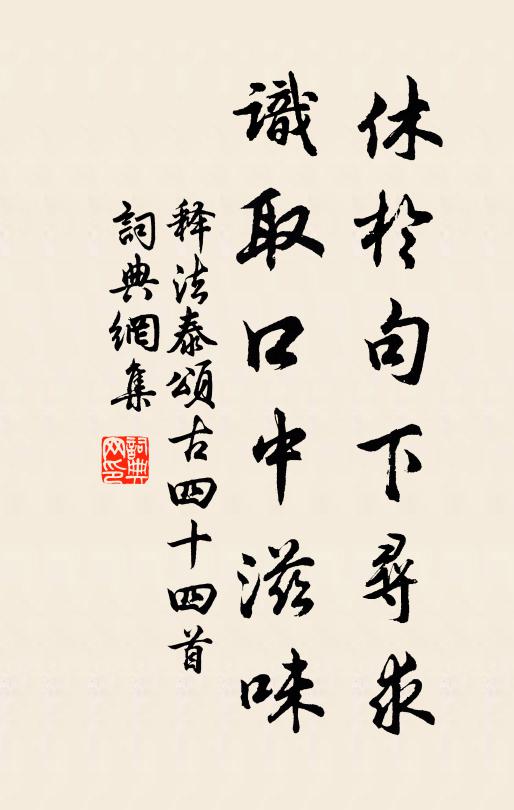 休於句下尋求
識取口中滋味
释法泰頌古四十四首
詞典網集
詞典网印